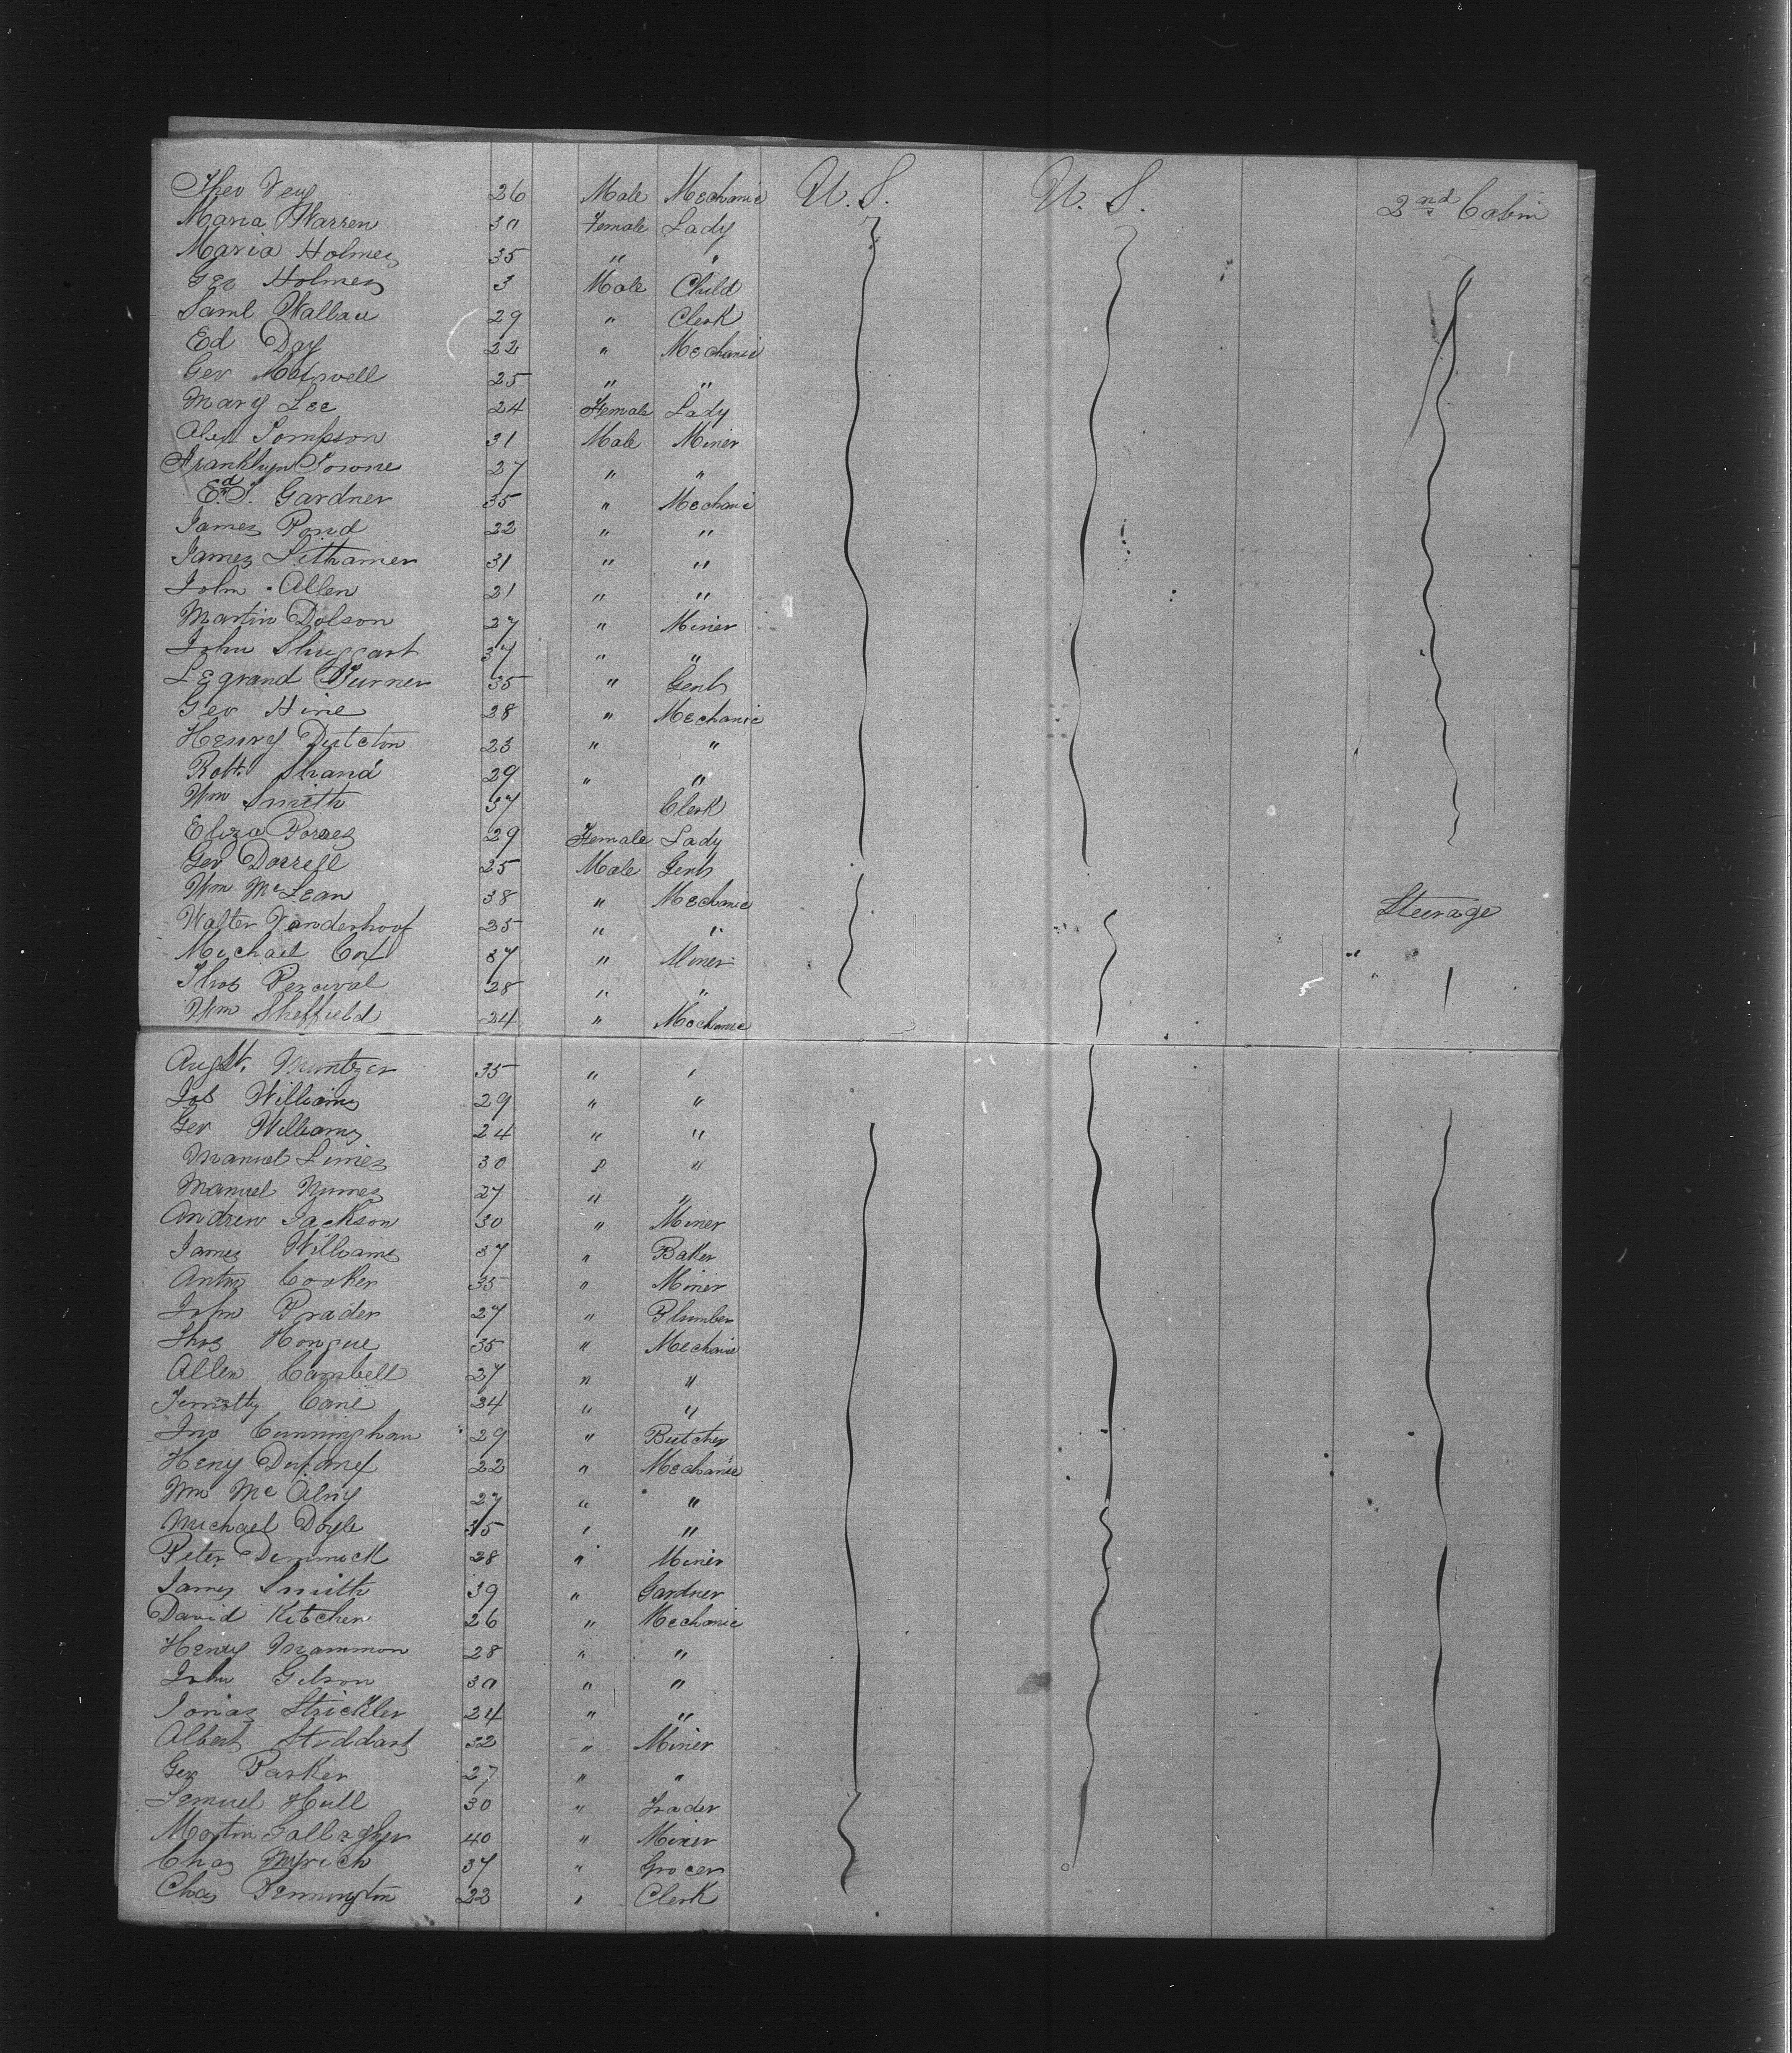 Theo Very 26 Male Mechanic U. S. U. S. 2nd Cabin
Maria Warren 30 Female Lady
Maria Holmes 35 " "
Geo Holmes 3 Male Child
Saml Wallace 29 " Clerk
Ed Day 22 " Mechanic
Geo Maxwell 25 " "
Mary Lee 24 Female Lady
Alex Tompson 31 Male Miner
Franklyn Towne 27 " "
Ed. S. Gardner 35 " Mechanic
James Pond 22 " "
James Lithamer 31 " "
John Allen 21 " "
Martin Dolson 27 " Miner
John Shuggart 37 " "
Legrand Turner 35 " Gent
Geo Hine 28 " Mechanic
Henry Dutcton 23 " "
Robt. Shand 29 " "
Wm Smith 37 Clerk
Eliza Pores 29 Female Lady
Geo Dorrell 25 Male Gent
Wm McLean 38 " Mechanic Steerage
Walter Vanderhoof 25 " "
Michael Cox 37 " Miner
Thos Percival 28 " "
Wm Sheffield 24 " Mechanic
August. Muntzer 35 " "
Jos Williams 29 " "
Geo Williams 24 " "
Manuel Limes 30 " "
Manuel Numes 27 " "
Andrew Jackson 30 " Miner
James Williams 37 " Baker
Anty Cooker 35 " Miner
John Prader 27 " Plumber
Thos Hongue 35 " Mechanic
Allen Cambell 27 " "
Timotty Cane 24 " "
Jno Cunningham 29 " Butcher
Heny 22 " Mechanic
Wm Mc Alny 27 " "
Michael Doyle 35 " "
Peter Dimmick 28 " Miner
James Smith 39 " Gardner
David Kitchen 26 " Mechanic
Henry Mammon 28 " "
John Gibson 30 " "
Jonas Strickler 24 " "
Albert Stoddart 32 " Miner
Geo Parker 27 " "
Samuel Hull 30 " Trader
Martin Gallagher 40 " Miner
Chas 37 " Grocer
Chas Pennington 22 " Clerk